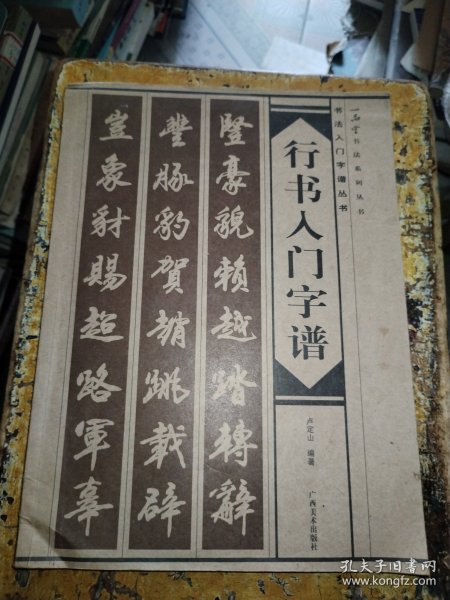 一品堂书法系列丛书
书法入门字谱丛书
行书入门字谱
卢定山 编著
广西美术出版社
豎豪貌賴越踏轉辭
豐豚豹賀趙跳載辟
豈象豺賜超路軍辜
孔夫子旧书网
www.kongfz.com